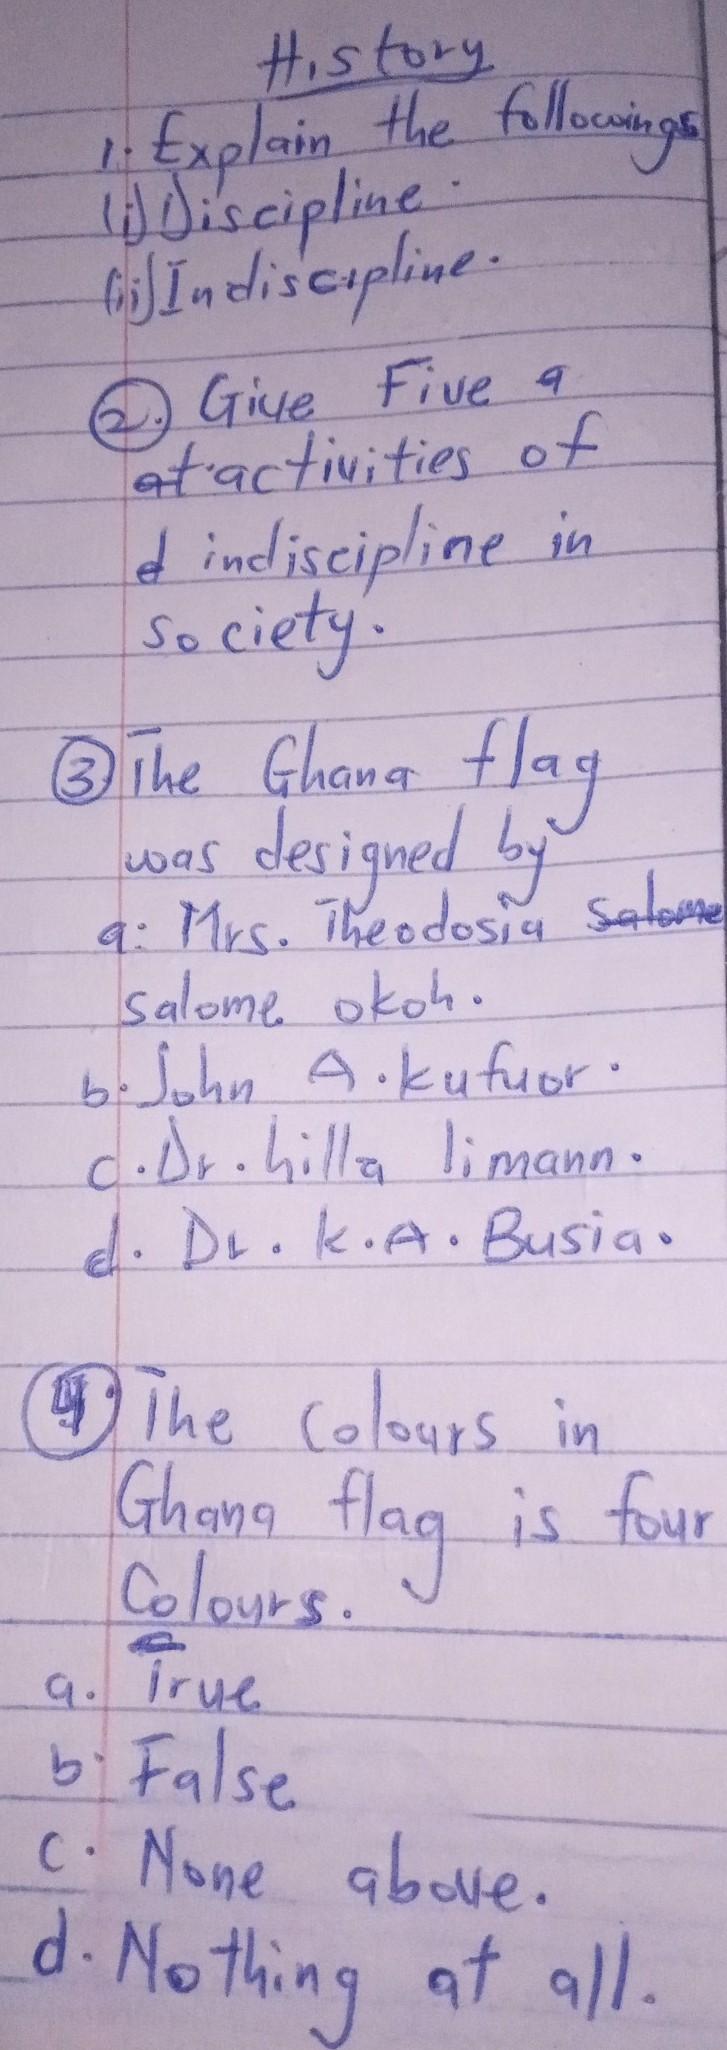 History
1. Explain the followings
(i) Discipline.
(ii) Indiscipline.
2. Give Five a
at activities of
d indiscipline in
society.
3 The Ghana flag
was designed by
a: Mrs. Theodosia Salome
salome okoh.
b. John A. kufuor.
c. Dr. hilla limann.
d. Dr. K.A. Busia.
4. The Colours in
Ghana flag is four
Colours.
a. True
b. False
c. None above.
d. Nothing at all.